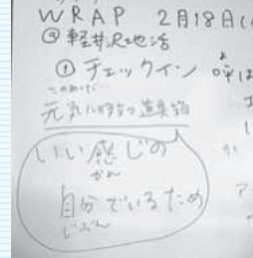 WRAP 2月18日(
@軽井沢地活
① チェックイン 呼は
このあいだ
元気に 道具箱
いい感じの
かん
自分でいるため
じぶん